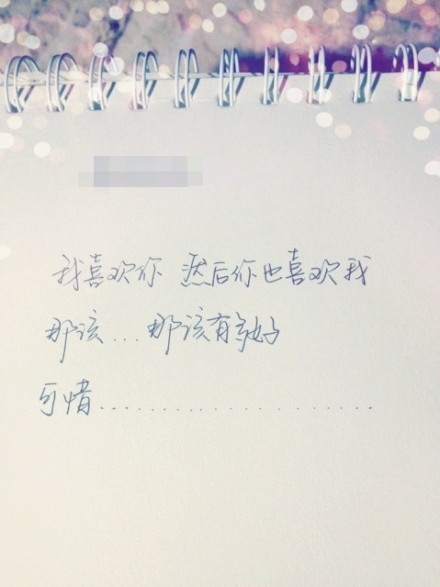 我喜欢你 然后你也喜欢我
那该...那该有多好
可惜......................